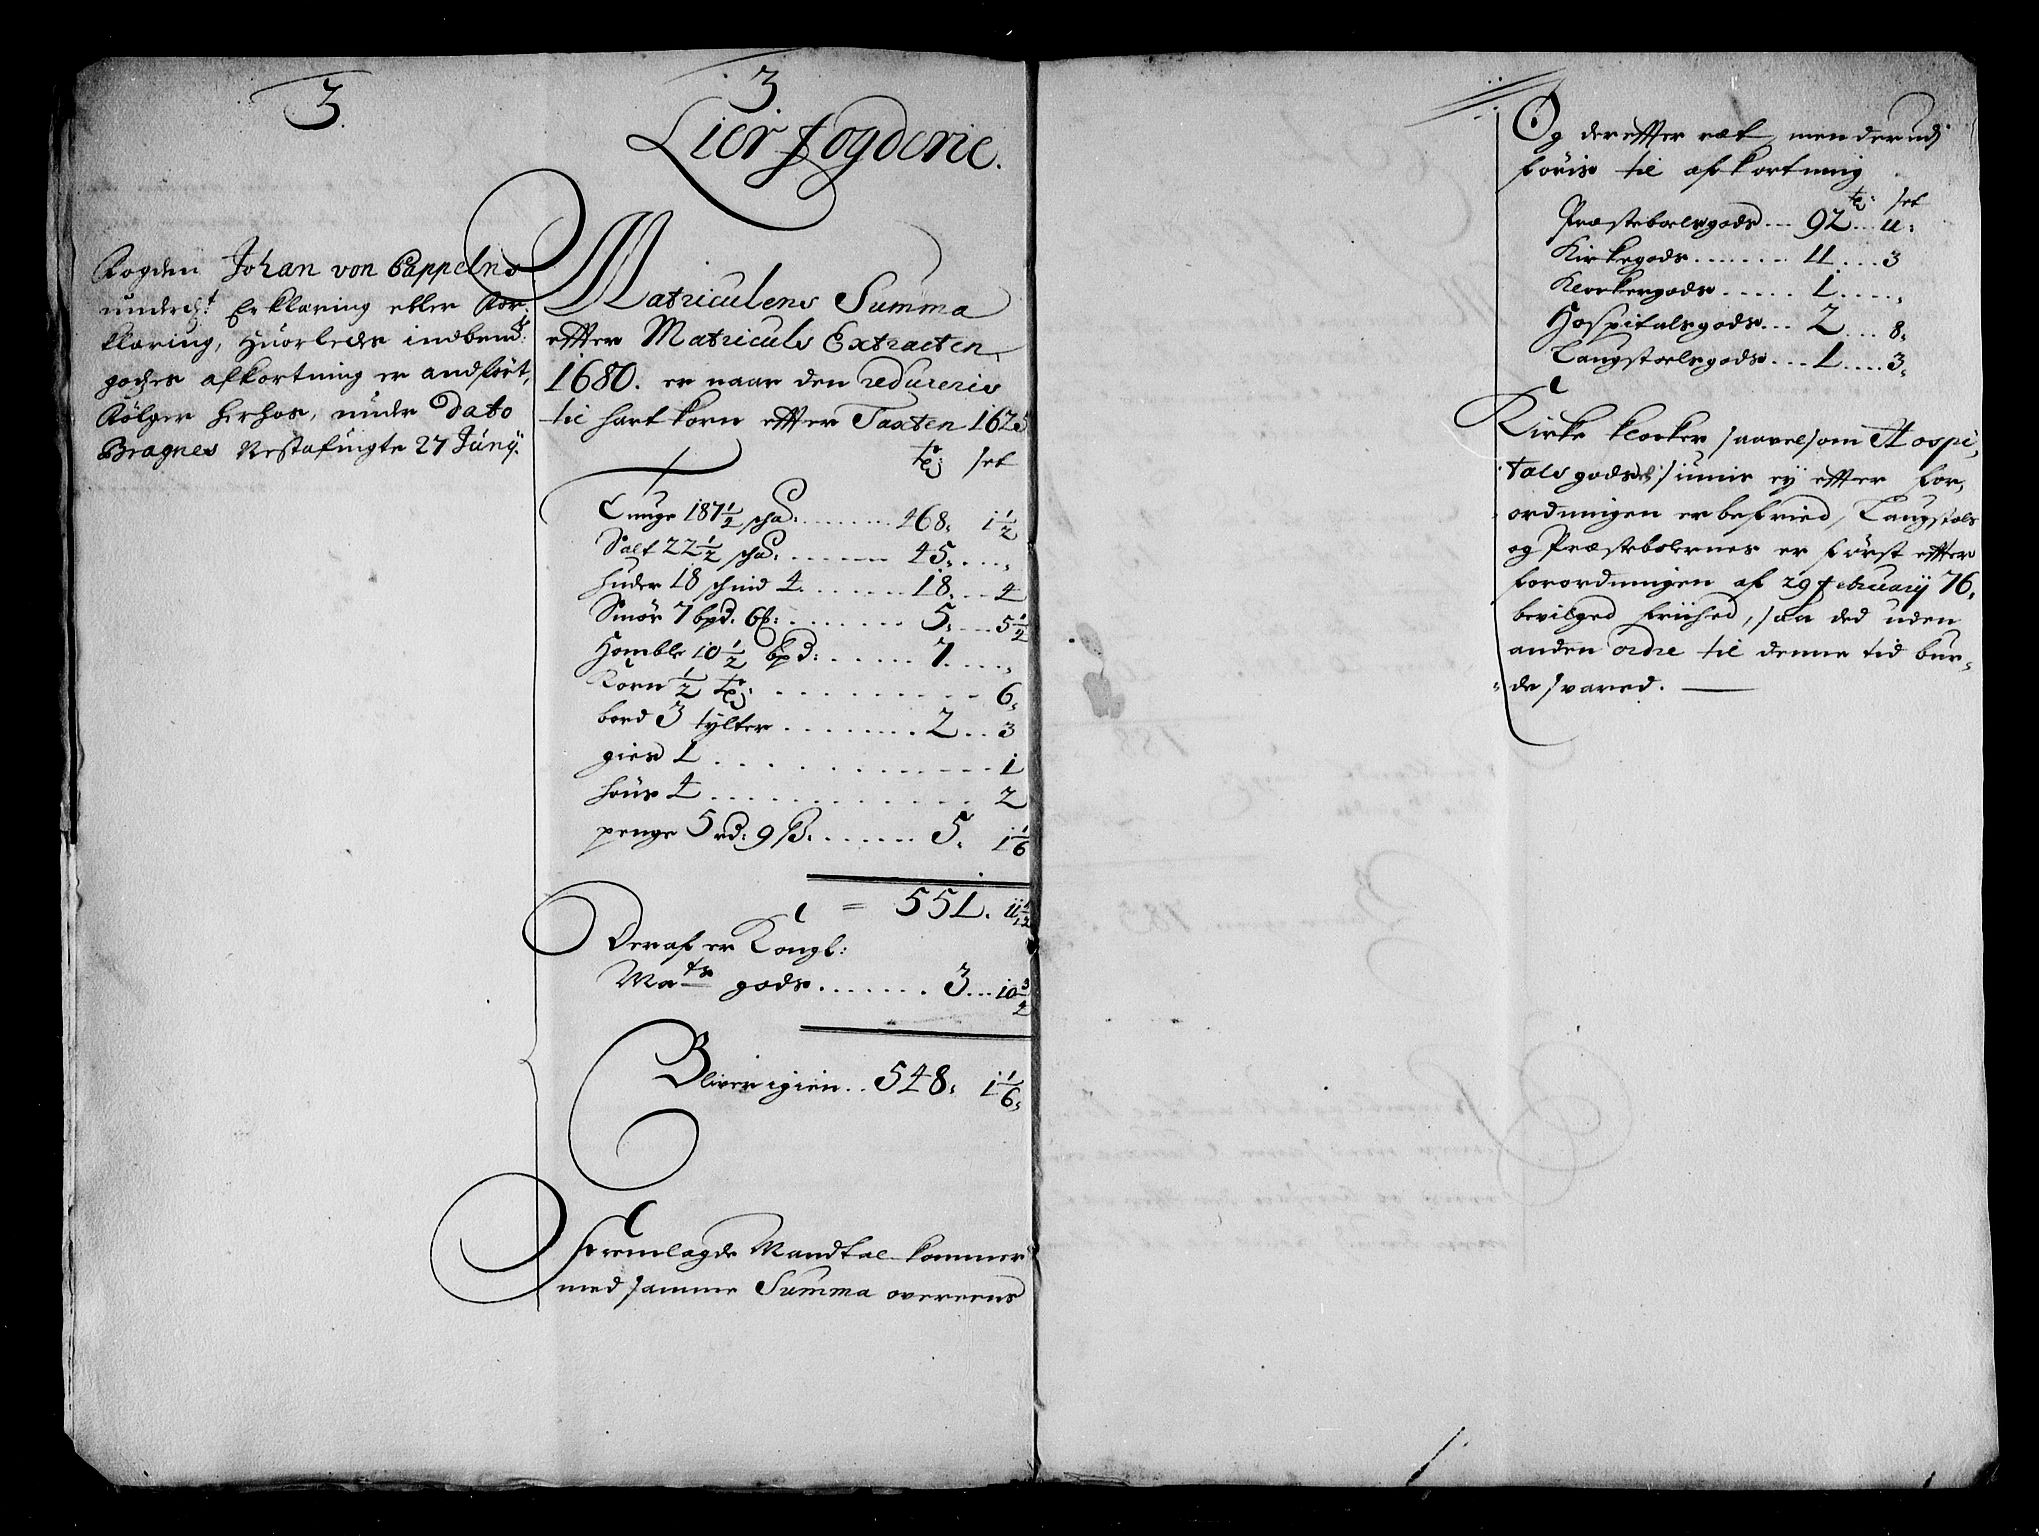 3.
Fogden Johan von Cappelns
underd:t Erklæring eller For:
klaring, Huorledes indbem:te
godses afkortning er andført,
Følger herhos, under Dato
Bragnes Restasingte 27 Junÿ.
3.
Lier fogderie.
Matriculens Summa
efter Matriculs Extracten
1680. er naar den reduceris
til hart korn effter Taxten 1625
tø: set
Tunge 187 1/2 schd: ......... 468: 1 1/2
Salt 22 1/2 schd: ....... 45: .... "
huder 18 schind 4 ....... 18: ... 4
Smör 7 bpd: 6 ......... 5: ... 5 1/2
Homble 10 1/2 bpd: ...... 7. .... "
Korn 1/2 tø: .......... 6:
bord 3 tylter ........ 2 .. 3
gied 1 .............. 1
höns 4 ............. 2
penge 5 rd: 9 ß: ....... 5. 1 1/6
= 551. 11 11/12
Deraf er Kongl:
Ma:ts gods ....... 3 ... 10 3/4
Bliver igien .. 548: 1 1/6:
Fremlagde Mandtal kommer
med samme Summa overeens
Og dereffter ræt, men derudj
föris til afkortning
tø: set
Præsteboelsgods ... 92 .. 11:
Kirkegods ....... 11 ... 3
Klockergods ..... 1 .... "
Hospitalsgods ... 2 ... 8:
Langstoelsgods ... 1 .... 3:
Kirke klocker saavelsom Hospi,
tals godset siunis ey effter for,
ordningen er befried, Langstols
og Præstebolernes er först effter
forordningen af 29 februarÿ 76.
bevilged friihed, saa ded uden
anden ordre til denne tid bur=
=de svared.